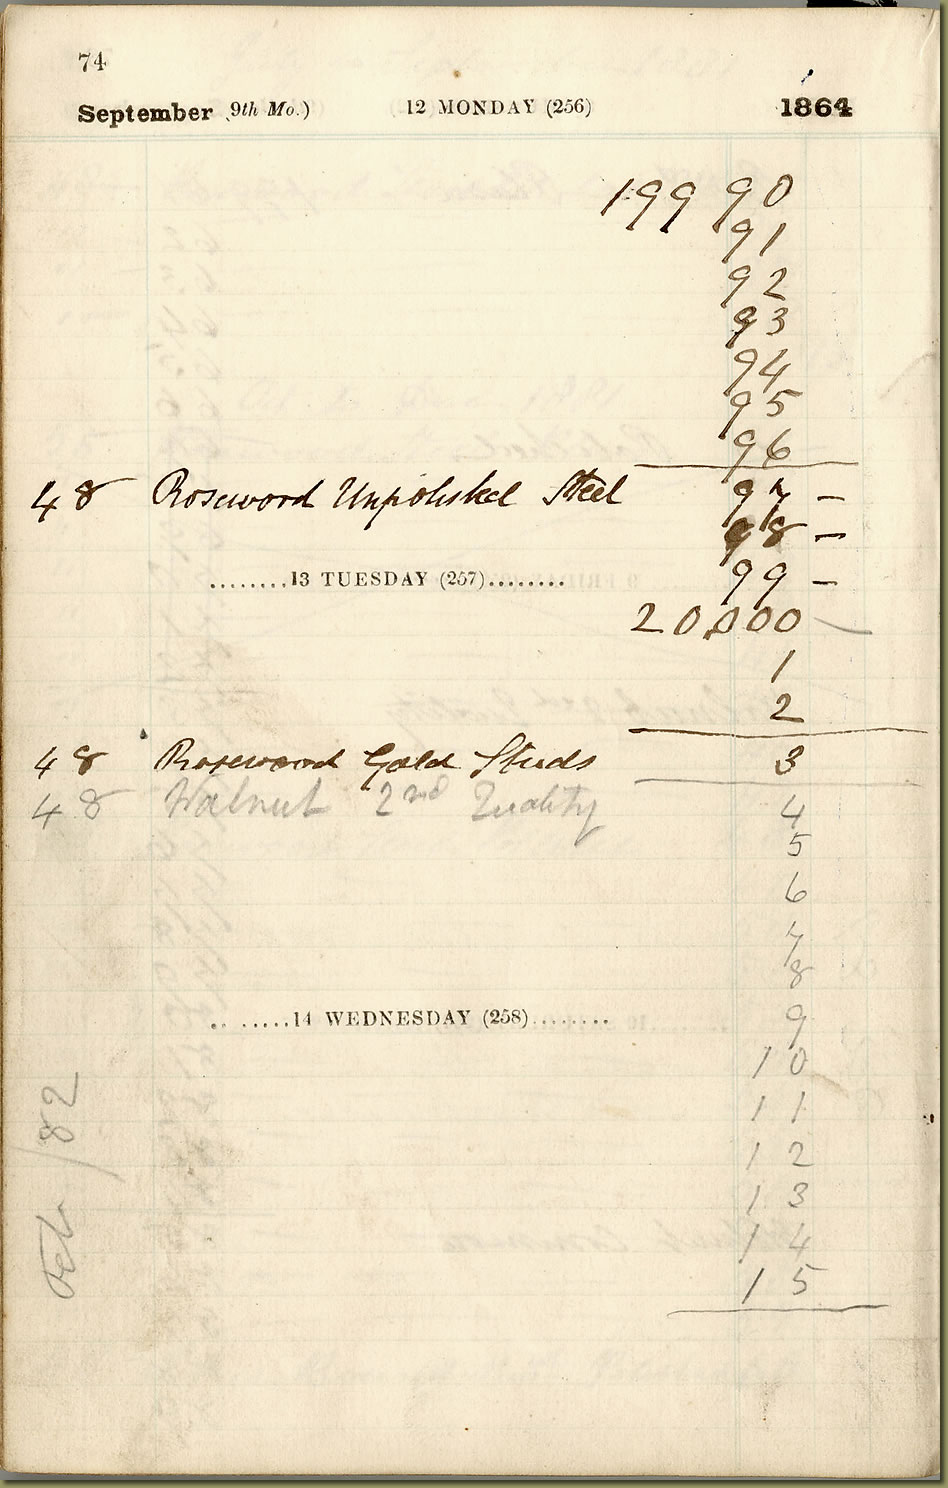 74
September (9th Mo.) 12 MONDAY (256) 1864
199 90
91
92
93
94
95
96
48 Rosewood Unpolished Steel 97 –
98 –
99 –
........13 TUESDAY (257)........
20,000
1
2
48 Rosewood Gold Studs 3
48 Walnut 2nd Quality 4
5
6
7
8
9
........14 WEDNESDAY (258)........
10
11
12
13
14
15
Oct /82